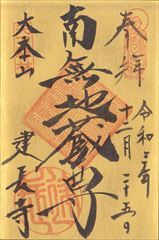 奉拝
令和三年
十二月二十五日
南無地蔵尊
大本山
建長寺